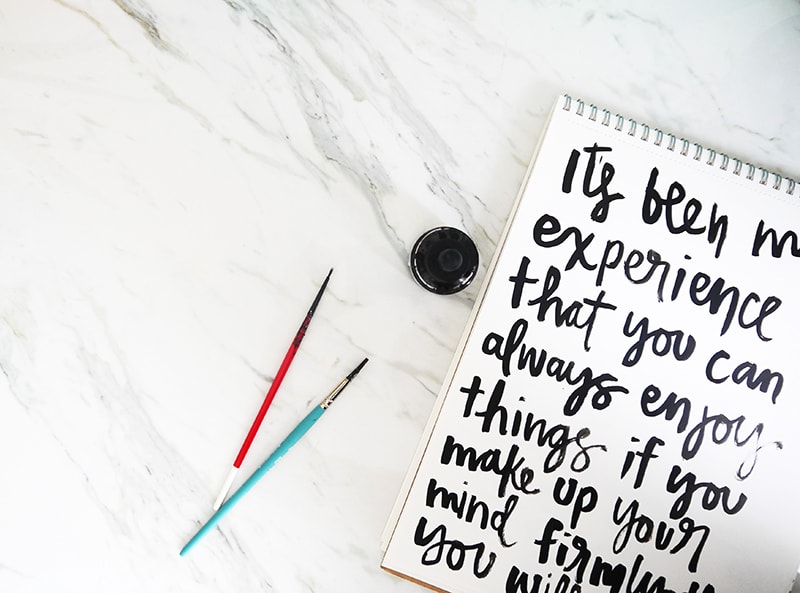 It's been m
experience
that you can
always enjoy
things if you
make up your
mind firmly th
you will